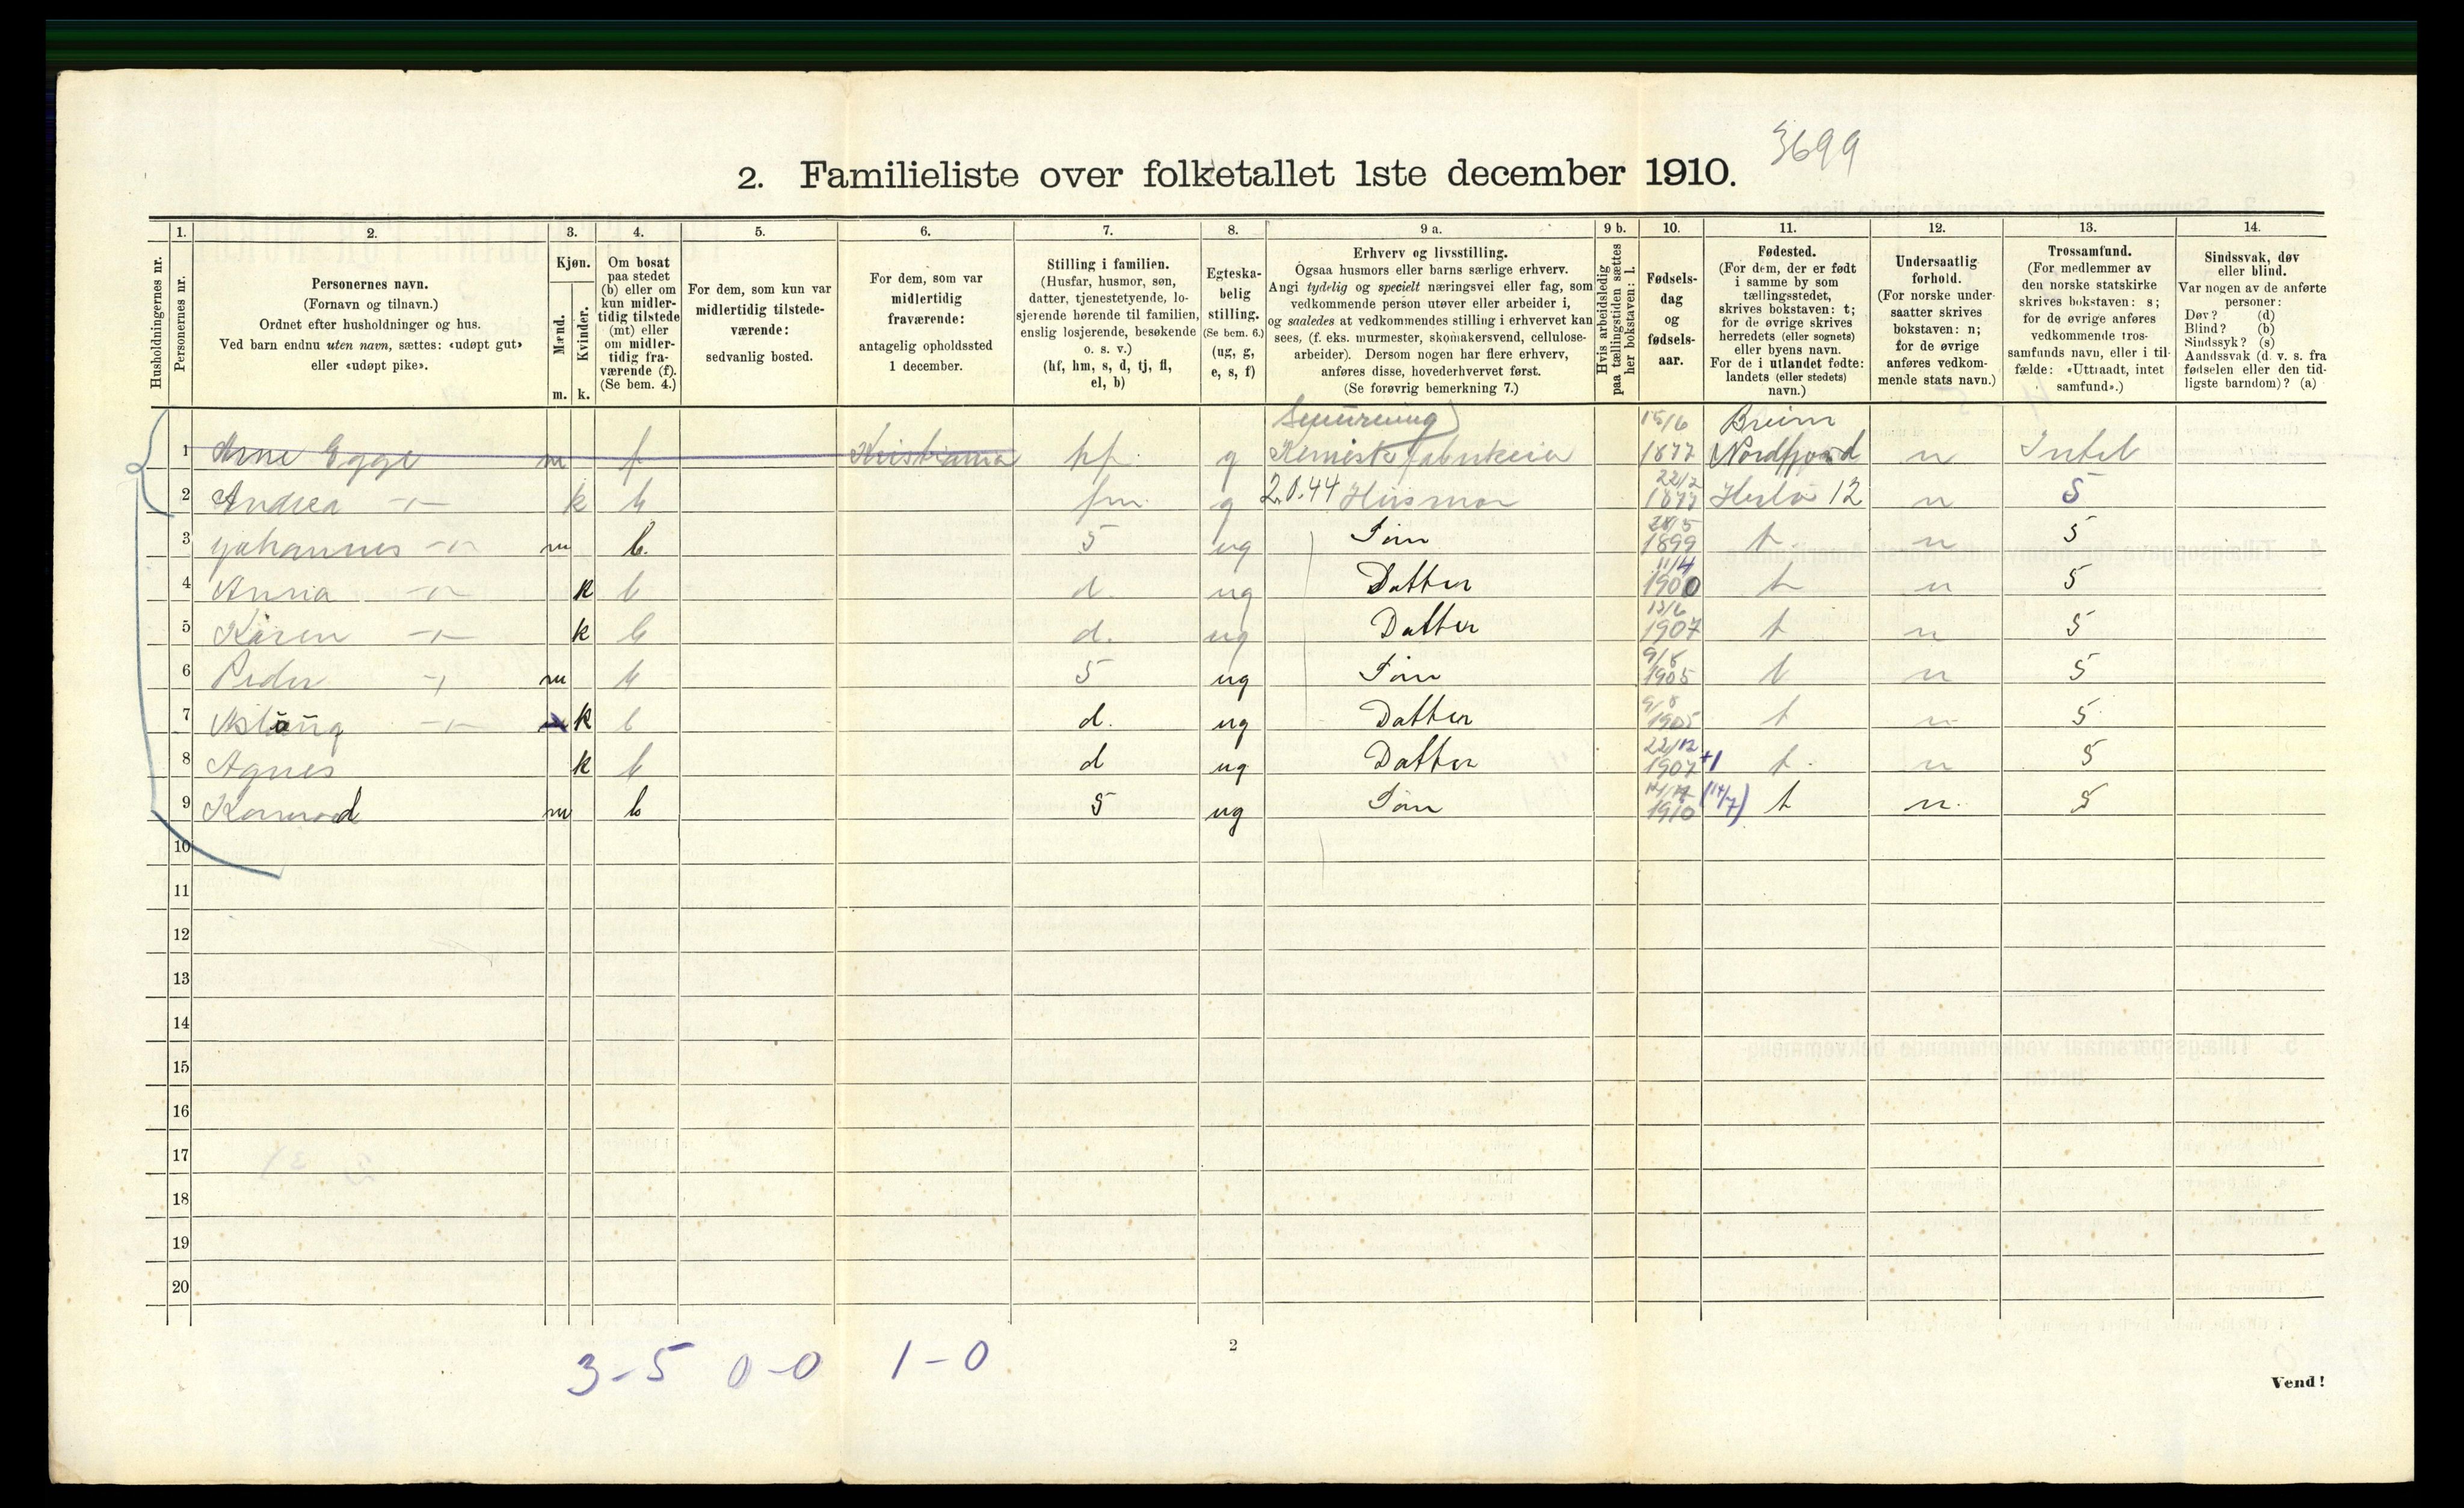 3699
2. Familieliste over folketallet 1ste december 1910.
Husholdningernes nr.
1. Personernes nr.
2. Personernes navn.
(Fornavn og tilnavn.)
Ordnet efter husholdninger og hus.
Ved barn endnu uten navn, sættes: «udøpt gut»
eller «udøpt pike».
3. Kjøn.
Mænd. m.
Kvinder. k.
4. Om bosat
paa stedet
(b) eller om
kun midler-
tidig tilstede
(mt) eller
om midler-
tidig fra-
værende (f).
(Se bem. 4.)
5. For dem, som kun var
midlertidig tilstede-
værende:
sedvanlig bosted.
6. For dem, som var
midlertidig
fraværende:
antagelig opholdssted
1 december.
7. Stilling i familien.
(Husfar, husmor, søn,
datter, tjenestetyende, lo-
sjerende hørende til familien,
enslig losjerende, besøkende
o. s. v.)
(hf, hm, s, d, tj, fl,
el, b)
8. Egteska-
belig
stilling.
(Se bem. 6.)
(ug, g,
e, s, f)
9 a. Erhverv og livsstilling.
Ogsaa husmors eller barns særlige erhverv.
Angi tydelig og specielt næringsvei eller fag, som
vedkommende person utøver eller arbeider i,
og saaledes at vedkommendes stilling i erhvervet kan
sees, (f. eks. murmester, skomakersvend, cellulose-
arbeider). Dersom nogen har flere erhverv,
anføres disse, hovederhvervet først.
(Se forøvrig bemerkning 7.)
9 b. Hvis arbeidsledig
paa tællingstiden sættes
her bokstaven: l.
10. Fødsels-
dag
og
fødsels-
aar.
11. Fødested.
(For dem, der er født
i samme by som
tællingsstedet,
skrives bokstaven: t;
for de øvrige skrives
herredets (eller sognets)
eller byens navn.
For de i utlandet fødte:
landets (eller stedets)
navn.)
12. Undersaatlig
forhold.
(For norske under-
saatter skrives
bokstaven: n;
for de øvrige
anføres vedkom-
mende stats navn.)
13. Trossamfund.
(For medlemmer av
den norske statskirke
skrives bokstaven: s;
for de øvrige anføres
vedkommende tros-
samfunds navn, eller i til-
fælde: «Uttraadt, intet
samfund».)
14. Sindssvak, døv
eller blind.
Var nogen av de anførte
personer:
Døv? (d)
Blind? (b)
Sindssyk? (s)
Aandssvak (d. v. s. fra
fødselen eller den tid-
ligste barndom)? (a)
1 Arne Egge m f Kristiania hf g Kemisk fabrikeier 15/6 1877 Breim Nordfjord n Intet
2 Andrea -"- k b hm g 2.0.44 Husmor 22/2 1877 Herlø 12 n S
3 Johannes -"- m b. S ug Søn 28/5 1899 t n S
4 Anna -"- k b d. ug Datter 11/4 1900 t n S
5 Karen -"- k b d. ug Datter 13/6 1907 t n S
6 Peder -"- m b S ug Søn 9/8 1905 t n S
7 Aslaug -"- k b d. ug Datter 9/8 1905 t n S
8 Agnes k b d ug Datter 22/12 1907 +1 t n S
9 Konrad m b S ug Søn 1910 (14/7) t n S
10
11
12
13
14
15
16
17
18
19
20
3-5 0-0 1-0
2
Vend!